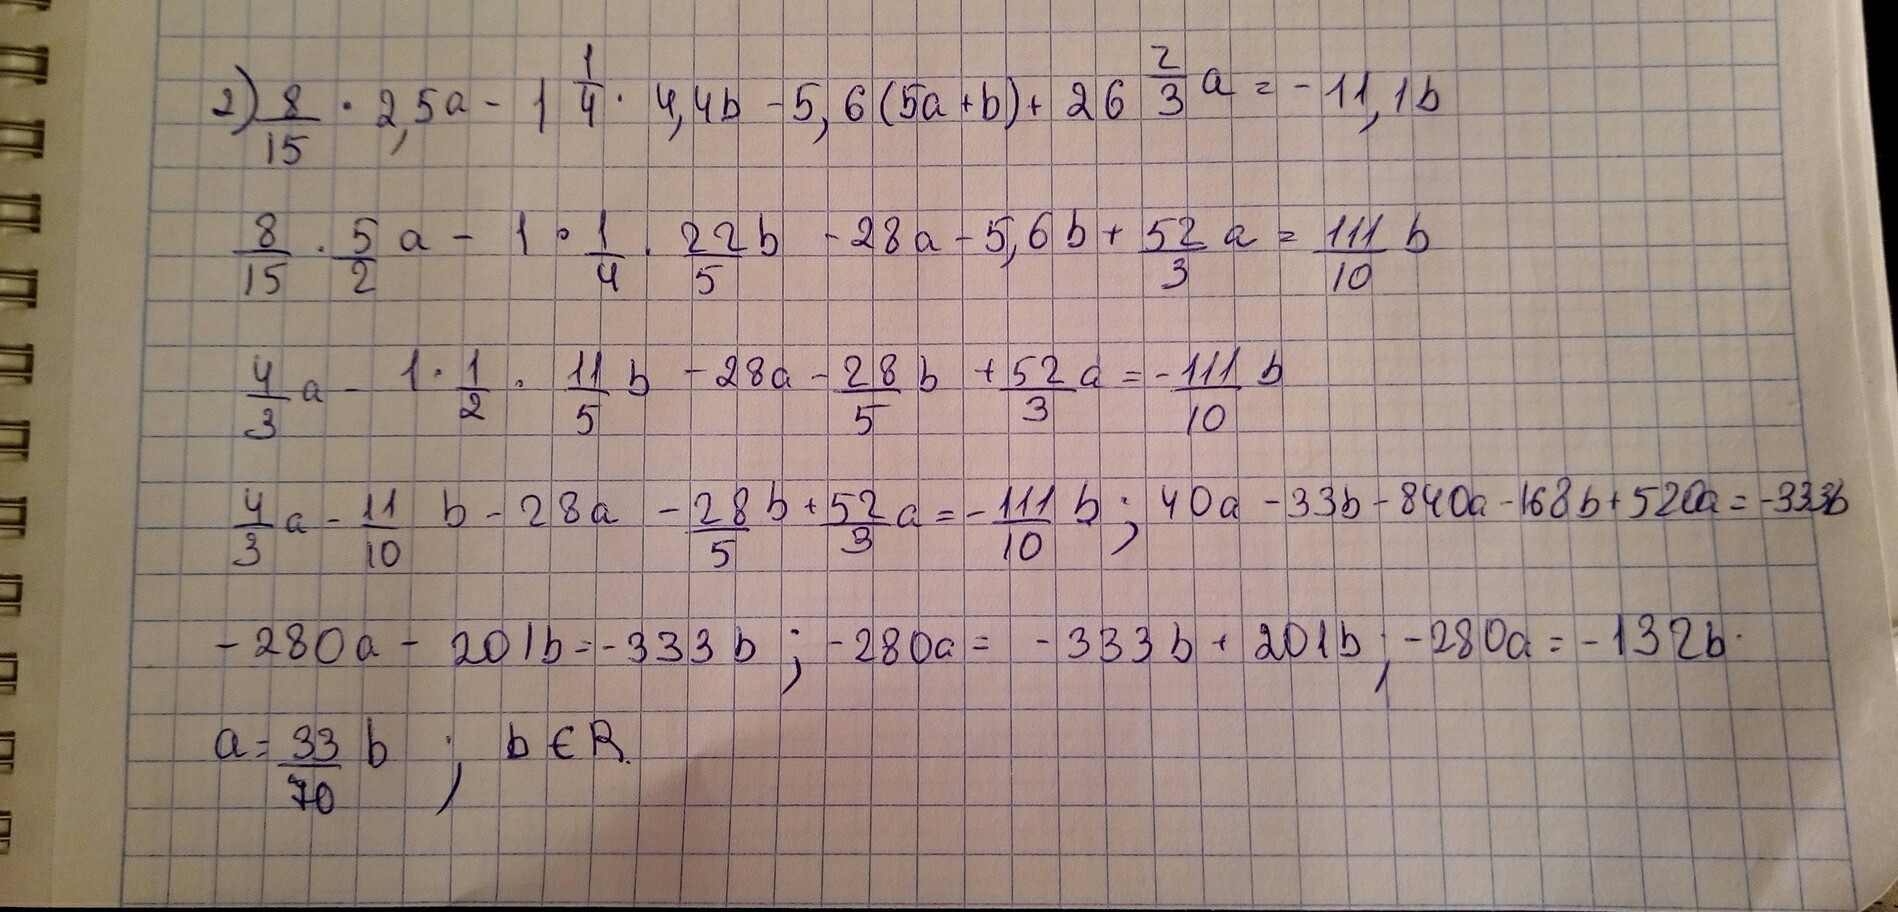 2) 8/15 · 2,5a - 1 1/4 · 4,4b - 5,6(5a+b) + 26 2/3 a = -11,1b
8/15 · 5/2 a - 1 · 1/4 · 22/5 b - 28a - 5,6b + 52/3 a = 111/10 b
4/3 a - 1 · 1/2 · 11/5 b - 28a - 28/5 b + 52/3 a = - 111/10 b
4/3 a - 11/10 b - 28a - 28/5 b + 52/3 a = - 111/10 b ; 40a - 33b - 840a - 168b + 520a = -333b
-280a - 201b = -333b ; -280a = -333b + 201b ; -280a = -132b.
a = 33/70 b ; b ∈ R.